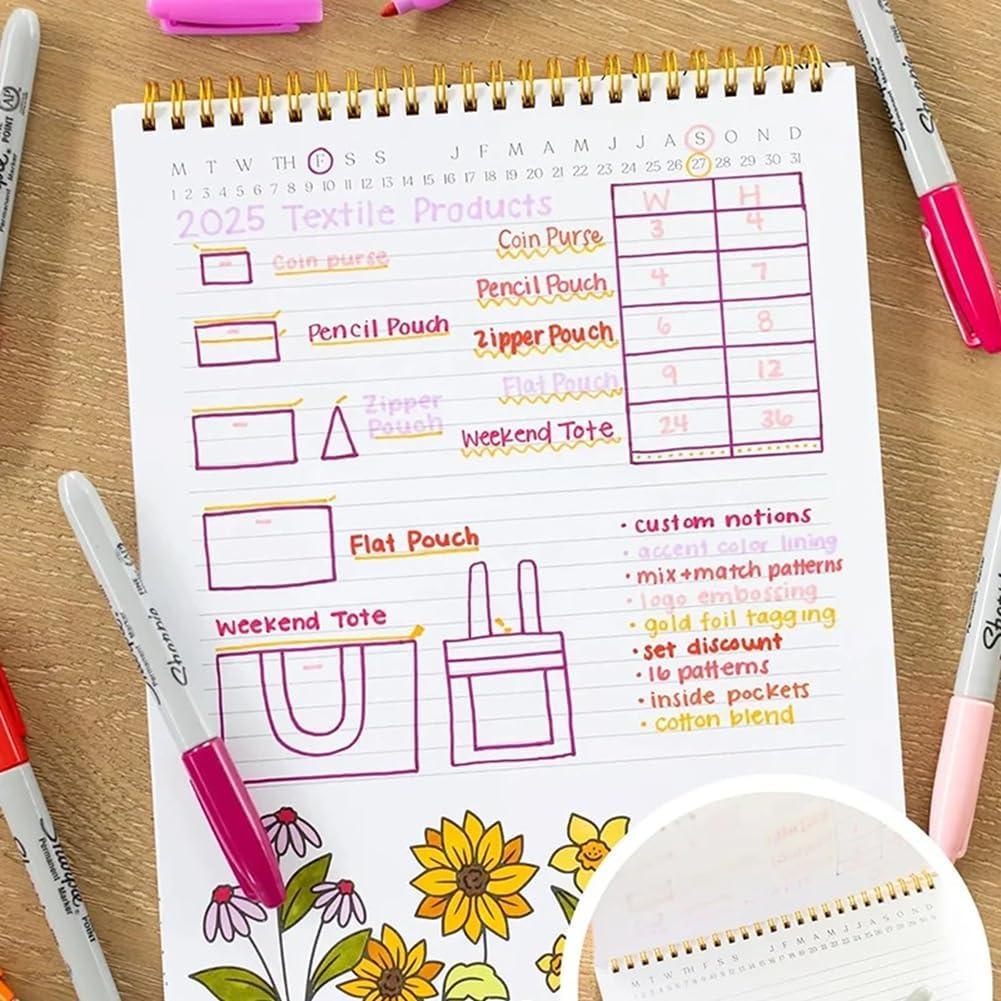 M T W TH F S S J F M A M J J A S O N D
1 2 3 4 5 6 7 8 9 10 11 12 13 14 15 16 17 18 19 20 21 22 23 24 25 26 27 28 29 30 31
2025 Textile Products
W H
Coin Purse 3 4
Pencil Pouch 4 7
Zipper Pouch 6 8
Flat Pouch 9 12
Weekend Tote 24 36
Coin purse
Pencil Pouch
Zipper
Pouch
Flat Pouch
Weekend Tote
• custom notions
• accent color lining
• mix+match patterns
• logo embossing
• gold foil tagging
• set discount
• 16 patterns
• inside pockets
• cotton blend
Sharpie
Permanent Marker
Sharpie
Permanent Marker
FINE POINT
Sharpie
Sharpie
Permanent Marker
POINT
AP
M T W TH F S S J F M A M J J A S O N D